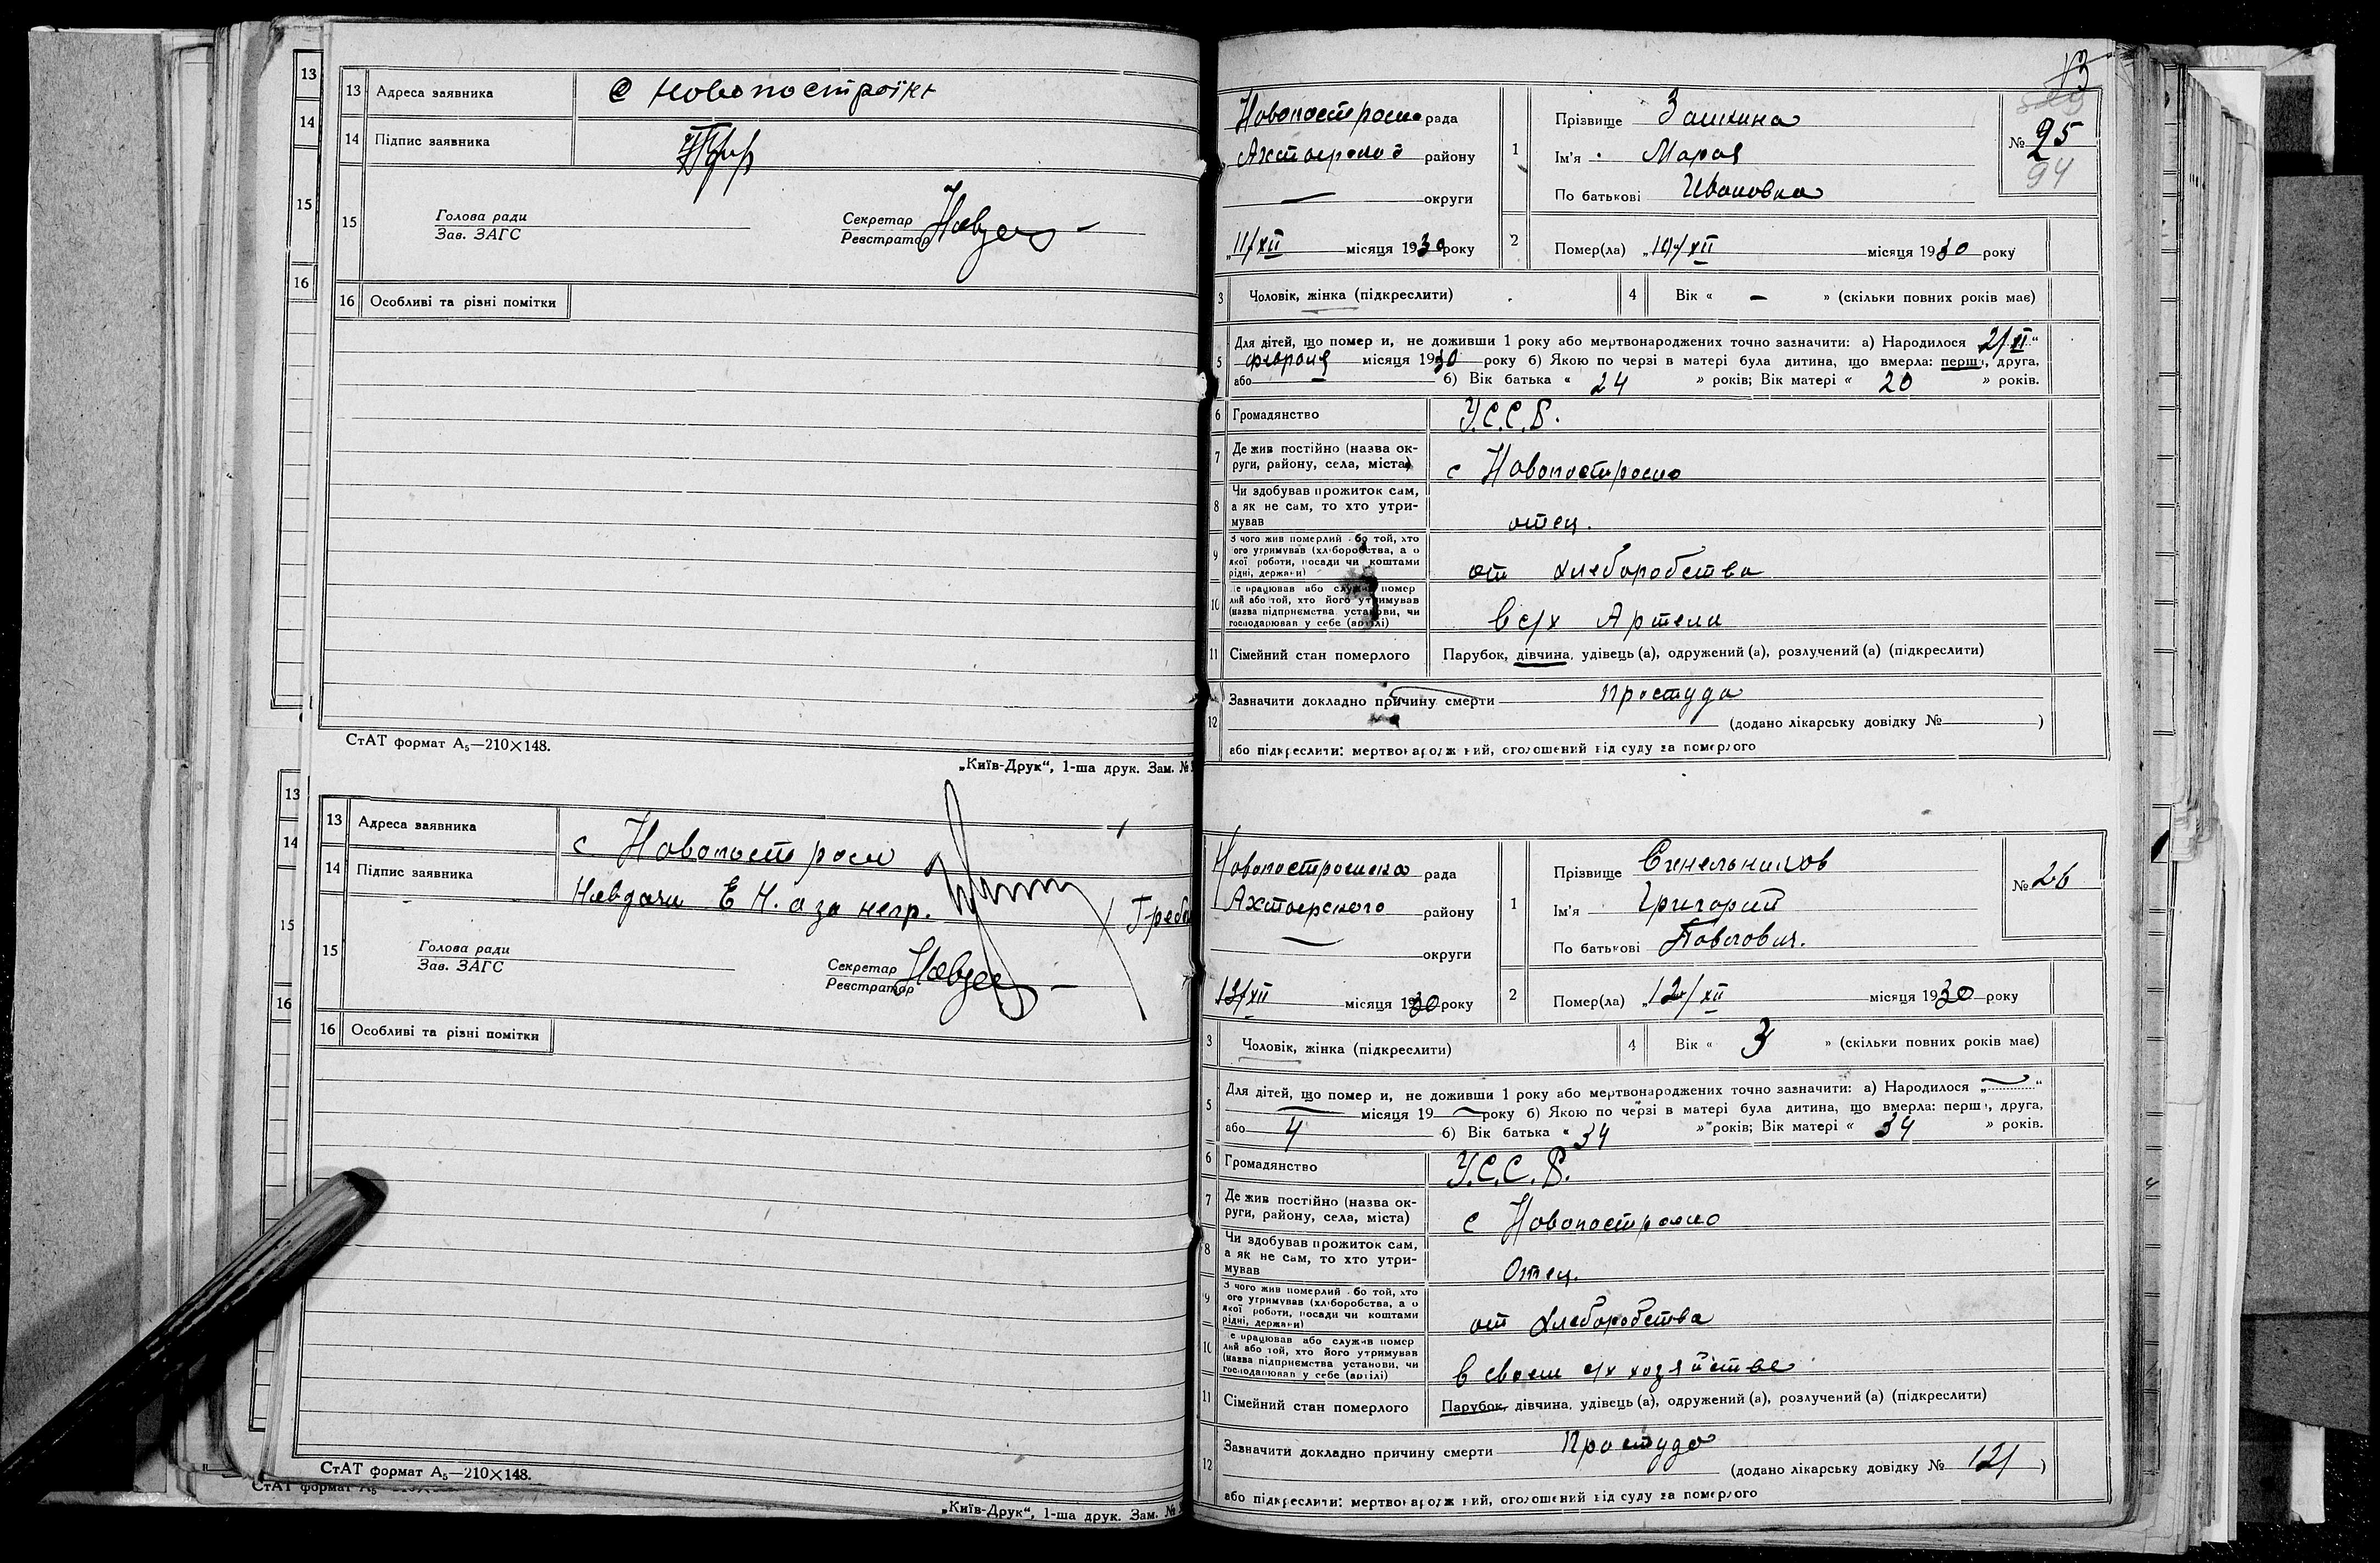 13
14
15
16
13 Адреса заявника с Новопостройки
14 Підпис заявника
15 Голова ради
Зав. ЗАГС
Секретар
Реєстратор
16 Особливі та різні помітки
СтАТ формат А5—210×148.
„Київ-Друк“, 1-ша друк. Зам. №
13
14
15
16
13 Адреса заявника с Новопострои
14 Підпис заявника Невдачи Е Н. а за негр.
15 Голова ради
Зав. ЗАГС
Секретар
Реєстратор
16 Особливі та різні помітки
СтАТ формат А5—210×148.
СтАТ формат А5
„Київ-Друк“, 1-ша друк. Зам. №
13
рада
району
округи
„11/XII місяця 1930 року
1 Прізвище
Ім'я Мария
По батькові Ивановна
№ 95
94
2 Помер(ла) „10/XII місяця 1930 року
3 Чоловік, жінка (підкреслити)
4 Вік « — » (скільки повних років має)
5 Для дітей, що померли, не доживши 1 року або мертвонароджених точно зазначити: а) Народилося 2/II“
февраля місяця 1930 року б) Якою по черзі в матері була дитина, що вмерла: перша, друга,
або б) Вік батька « 24 » років; Вік матері « 20 » років.
6 Громадянство У.С.С.Р.
7 Де жив постійно (назва округи, району, села, міста) с Новопостроено
8 Чи здобував прожиток сам, а як не сам, то хто утримував отец.
9 З чого жив померлий або той, хто його утримував (хліборобства, а о якої роботи, посади чи коштами рідні, держави) от хлеборобства
10 Де працював або служив помер лий або той, хто його утримував (назва підприємства, установи, чи господарював у себе (артілі) в с/х Артели
11 Сімейний стан померлого Парубок, дівчина, удівець (а), одружений (а), розлучений (а) (підкреслити)
12 Зазначити докладно причину смерти простуда
(додано лікарську довідку № )
або підкреслити: мертвонароджений, оголошений від суду за померлого
рада
Ахтоерского району
округи
13/XII місяця 1930 року
1 Прізвище Синельников
Ім'я Григорий
По батькові Павлович.
№ 26
2 Помер(ла) „12/XII місяця 1930 року
3 Чоловік, жінка (підкреслити)
4 Вік « 3 » (скільки повних років має)
5 Для дітей, що померли, не доживши 1 року або мертвонароджених точно зазначити: а) Народилося „ “
місяця 19 року б) Якою по черзі в матері була дитина, що вмерла: перша, друга,
або 4 б) Вік батька « 34 » років; Вік матері « 34 » років.
6 Громадянство У.С.С.Р.
7 Де жив постійно (назва округи, району, села, міста) с Новопостроено
8 Чи здобував прожиток сам, а як не сам, то хто утримував Отец.
9 З чого жив померлий або той, хто його утримував (хліборобства, а о якої роботи, посади чи коштами рідні, держави) от хлеборобства
10 Де працював або служив помер лий або той, хто його утримував (назва підприємства, установи, чи господарював у себе (артілі) в своем с/х хозяйстве
11 Сімейний стан померлого Парубок, дівчина, удівець (а), одружений (а), розлучений (а) (підкреслити)
12 Зазначити докладно причину смерти Простуда
(додано лікарську довідку № 121 )
або підкреслити: мертвонароджений, оголошений від суду за померлого